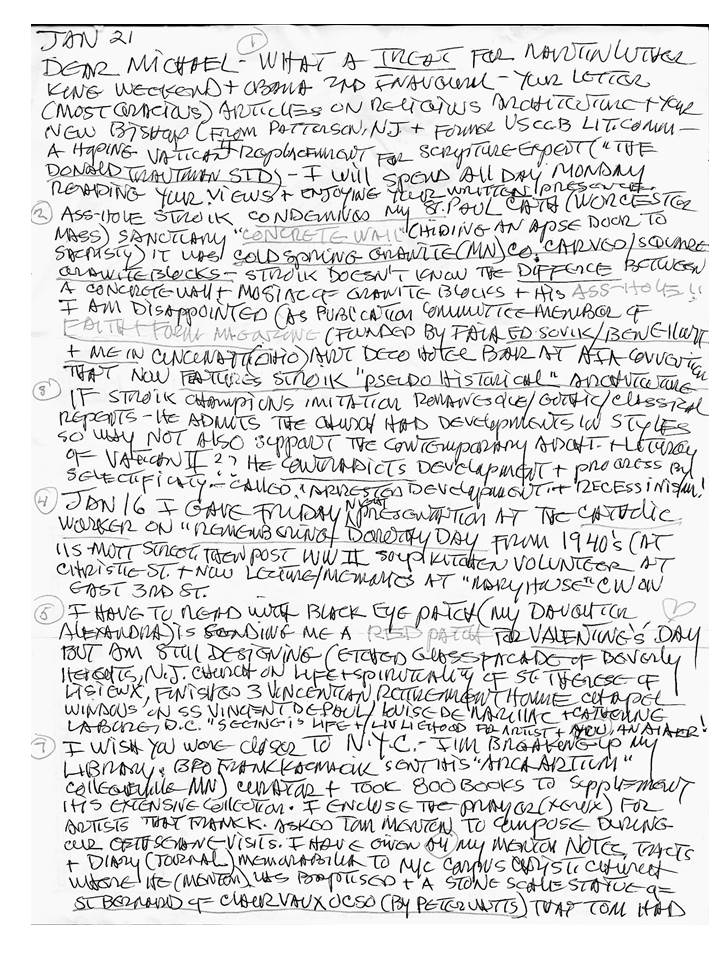 JAN 21
①
DEAR MICHAEL - WHAT A TREAT FOR MARTIN LUTHER
KING WEEKEND + OBAMA 2ND INAUGURAL - YOUR LETTER
(MOST GRACIOUS) ARTICLES ON RELIGIOUS ARCHITECTURE + YOUR
NEW BISHOP (FROM PATTERSON, N.J. + FORMER USCCB LIT. COMM -
A HOPING VATICAN II REPLACEMENT FOR SCRIPTURE EXPERT ("THE
DONALD TRAUTMAN STD) - I WILL SPEND ALL DAY MONDAY
READING YOUR VIEWS + ENJOYING YOUR WRITTEN PRESENCE.
② ASS-HOLE STROIK CONDEMNING MY ST. PAUL CATH (WORCESTER
MASS) SANCTUARY "CONCRETE WALL" (HIDING AN APSE DOOR TO
SACRISTY) IT WAS COLD SPRING GRANITE (MN) CO. CARVED/SQUARE
GRANITE BLOCKS - STROIK DOESN'T KNOW THE DIFFENCE BETWEEN
A CONCRETE WALL + MOSIAC OF GRANITE BLOCKS + HIS ASS-HOLE!!
I AM DISAPPOINTED (AS PUBLICATION COMMITTEE MEMBER OF
FAITH + FORM MAGAZINE (FOUNDED BY FAIA ED SOVIK/BEN ELLIOTT
+ ME IN CINCINATTI (OHIO) ART DECO HOTEL BAR AT AIA CONVENTION
THAT NOW FEATURES STROIK "PSEUDO HISTORICAL" ARCHITECTURE
③ IF STROIK CHAMPIONS IMITATION ROMANESQUE/GOTHIC/CLASSICAL
REPEATS - HE ADMITS THE CHURCH HAD DEVELOPMENTS IN STYLES
SO WHY NOT ALSO SUPPORT THE CONTEMPORARY ARCHT. + LITURGY
OF VATICAN II ?? HE CONTRADICTS DEVELOPMENT + PROGRESS BY
SELECTIFICATY - CALLED "ARRESTED DEVELOPMENT" + RECESSINISM!
④ JAN 16 I GAVE FRIDAY NIGHT PRESENTATION AT THE CATHOLIC
WORKER ON "REMEMBERING DOROTHY DAY FROM 1940'S (AT
115 MOTT STREET, THEN POST WW II SOUP KITCHEN VOLUNTEER AT
CHRISTIE ST. + NOW LECTURE/MEMORIES AT "MARY HOUSE" CW ON
EAST 3RD ST.
⑤ I HAVE TO READ WITH BLACK EYE PATCH (MY DAUGHTER,
ALEXANDRA) IS SENDING ME A RED PATCH FOR VALENTINE'S DAY
BUT AM STILL DESIGNING (ETCHED GLASS FACADE OF BEVERLY
HEIGHTS, N.J. CHURCH ON LIFE + SPIRITUALITY OF ST. THERESE OF
LISIEUX, FINISHED 3 VINCENTIAN RETIREMENT HOME CHAPEL
WINDOWS ON SS VINCENT DE PAUL/LOUISE DE MARILLAC + CATHERINE
LABOURE, D.C. "SEEING IS LIFE + LIVLIEHOOD FOR ARTIST + YOU AN
⑦ I WISH YOU WERE CLOSER TO N.Y.C. - I'M BREAKING UP MY
LIBRARY, BRO FRANK KACMARCIK SENT HIS "ARCA ARTIUM"
COLLEGEVILLE MN) CURATOR + TOOK 800 BOOKS TO SUPPLEMENT
HIS EXTENSIVE COLLECTION. I ENCLOSE THE PRAYER (XEROX) FOR
ARTISTS THAT FRANCK. ASKED TOM MERTON TO COMPOSE DURING
OUR GETHSEMANE VISITS. I HAVE GIVEN ALL MY MERTON NOTES, TRACTS
+ DIARY (JOURNAL) MEMORABILIA TO NYC CORPUS CHRISTI CHURCH
WHERE HE (MERTON) WAS BAPTISED + A STONE SCALE STATUE OF
ST BERNARD OF CLAIRVAUX OCSO (BY PETER WATTS) THAT TOM HAD